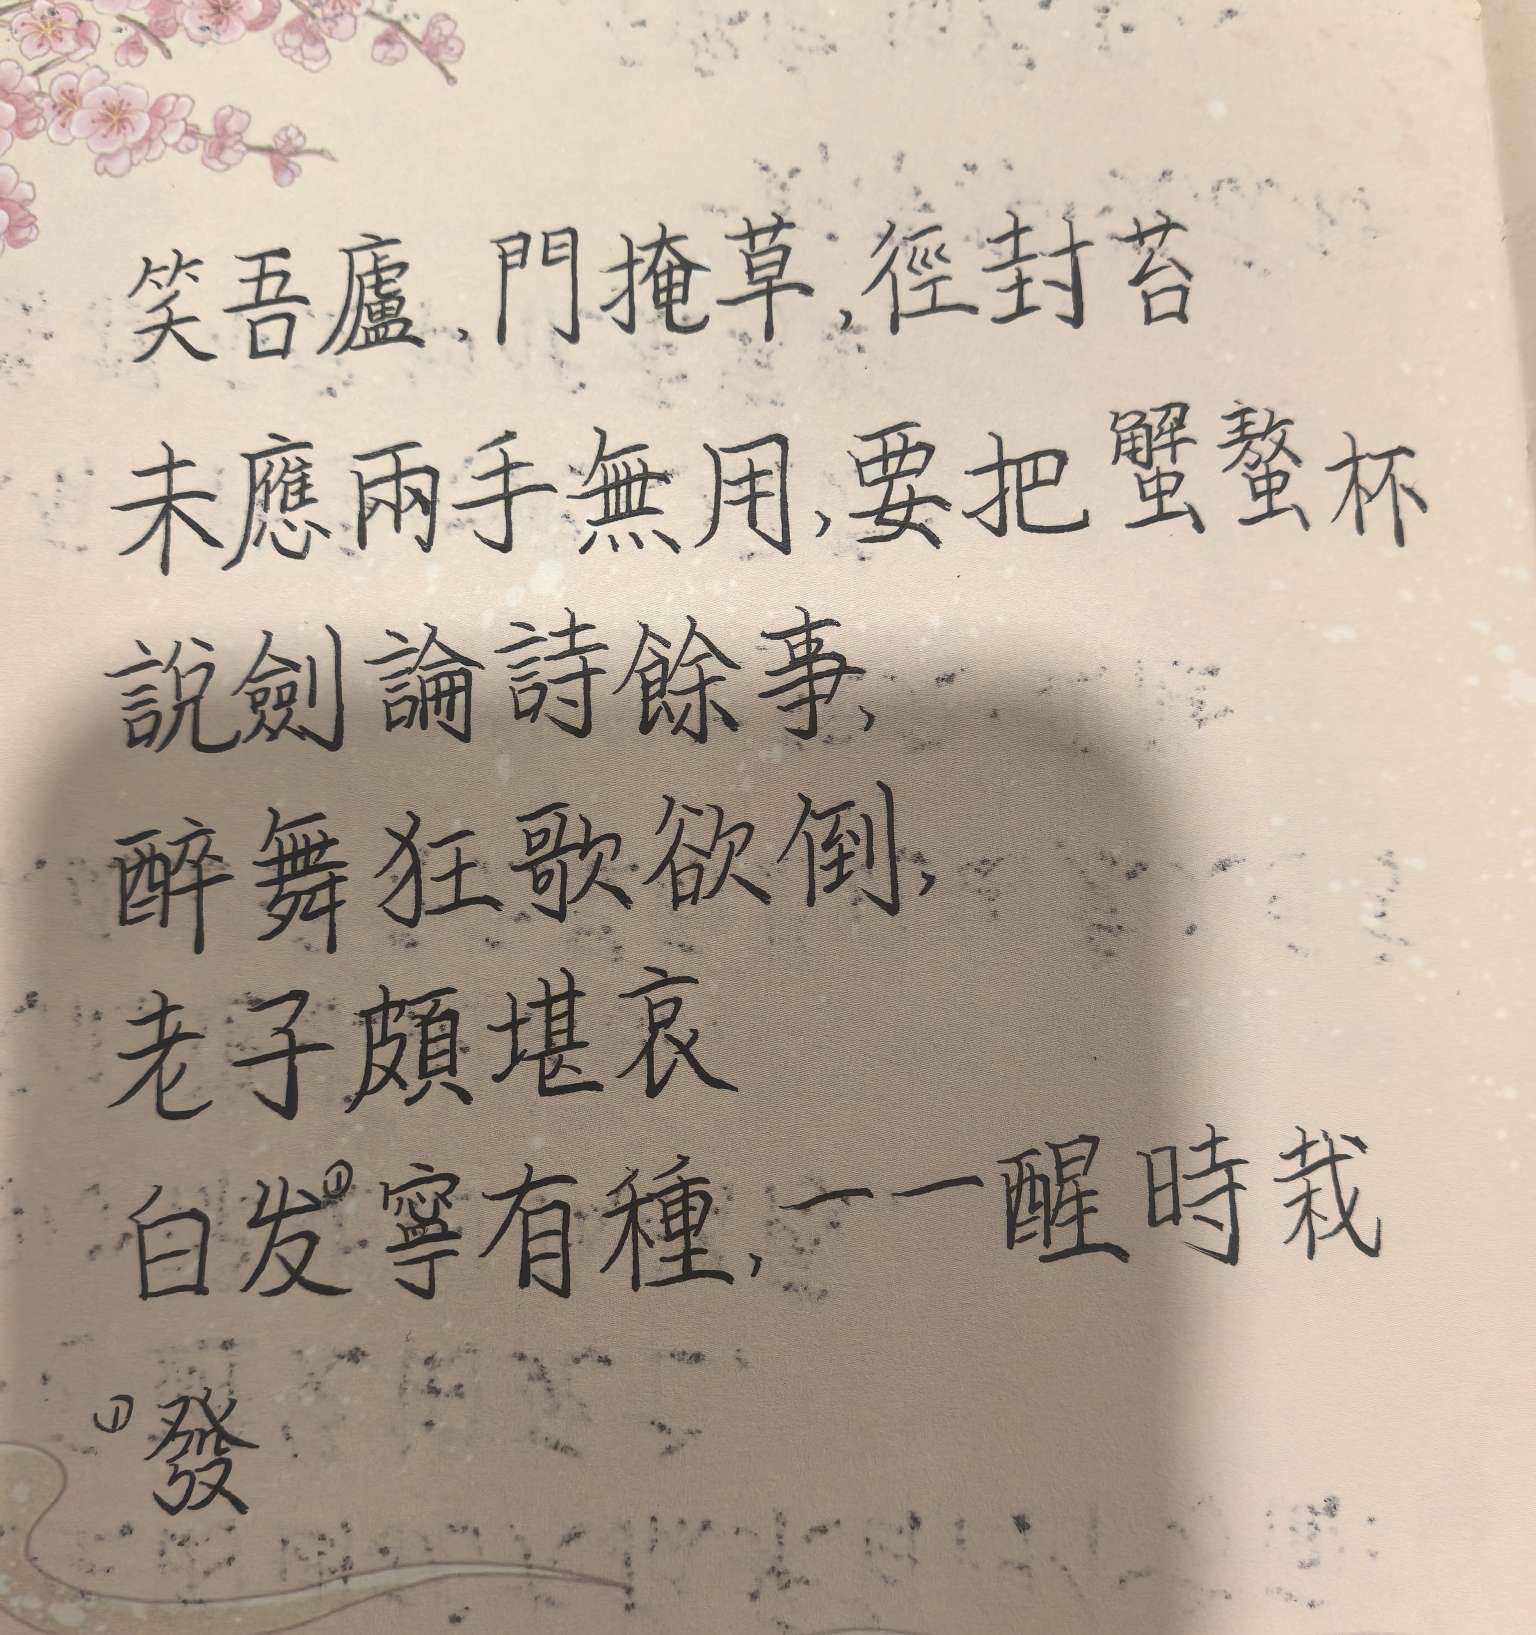 笑吾廬,門掩草,徑封苔
未應兩手無用,要把蟹螯杯
說劍論詩餘事,
醉舞狂歌欲倒,
老子頗堪哀
白发①寧有種,一一醒時栽
①發